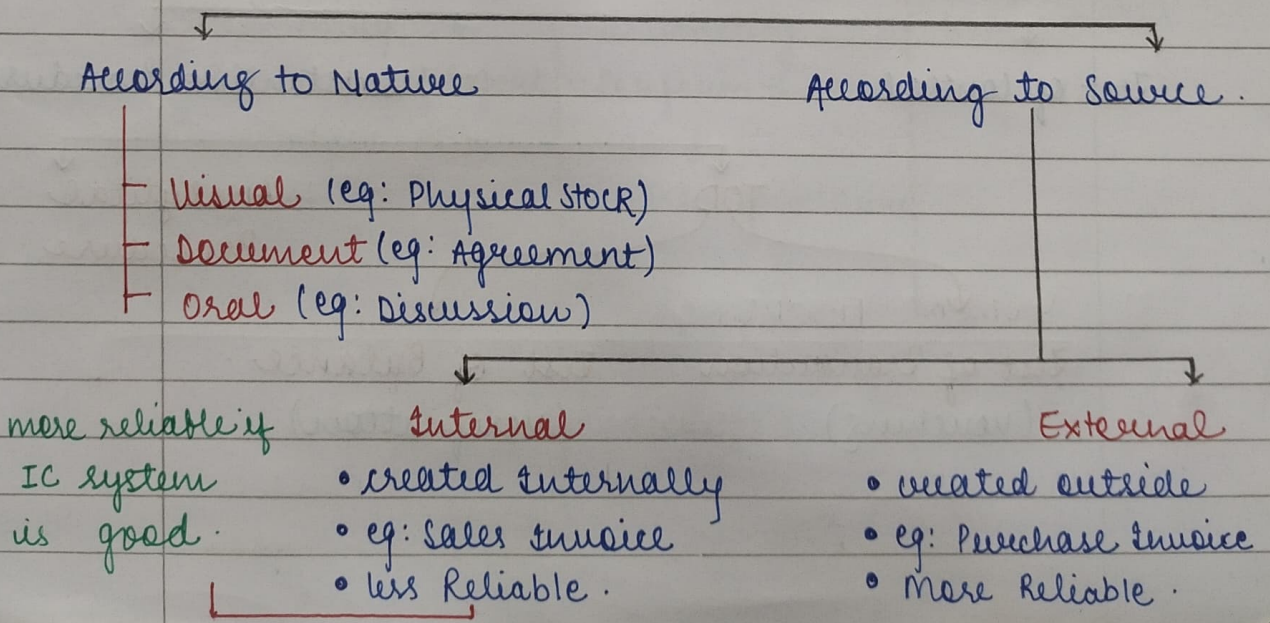 According to Nature
According to Source.
Visual (eg: Physical Stock)
Document (eg: Agreement)
Oral (eg: Discussion)
more reliable if
IC system
is good.
Internal
• created Internally
• eg: Sales Invoice
• less Reliable.
External
• created outside
• eg: Purchase Invoice
• More Reliable.